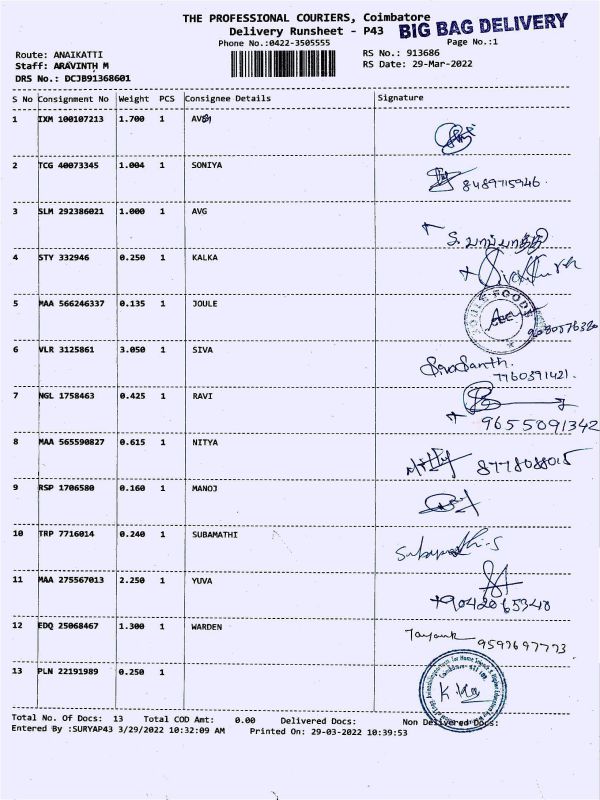 THE PROFESSIONAL COURIERS, Coimbatore
BIG BAG DELIVERY
Delivery Runsheet - P43
Phone No.:0422-3505555
Page No.:1
Route: ANAIKATTI
RS No.: 913686
Staff: ARAVINTH M
RS Date: 29-Mar-2022
DRS No.: DCJB91368601
S No Consignment No Weight PCS Consignee Details Signature
1 IXM 100107213 1.700 1
2 TCG 40073345 1.004 1 SONIYA
8489715946.
3 SLM 292386021 1.000 1 AVG
4 STY 332946 0.250 1 KALKA
5 MAA 566246337 0.135 1 JOULE
JOULE FOODS
9080576320
6 VLR 3125861 3.050 1 SIVA
Sivasanth.
7760391421.
7 NGL 1758463 0.425 1 RAVI
9655091342
8 MAA 565590827 0.615 1 NITYA
9 RSP 1706580 0.160 1 MANOJ
10 TRP 7716014 0.240 1 SUBAMATHI
Subamathi.S
11 MAA 275567013 2.250 1 YUVA
9042065340
12 EDQ 25068467 1.300 1 WARDEN
9597697773
13 PLN 22191989 0.250 1
Total No. Of Docs: 13 Total COD Amt: 0.00 Delivered Docs: Non Delivered Docs:
Entered By :SURYAP43 3/29/2022 10:32:09 AM Printed On: 29-03-2022 10:39:53